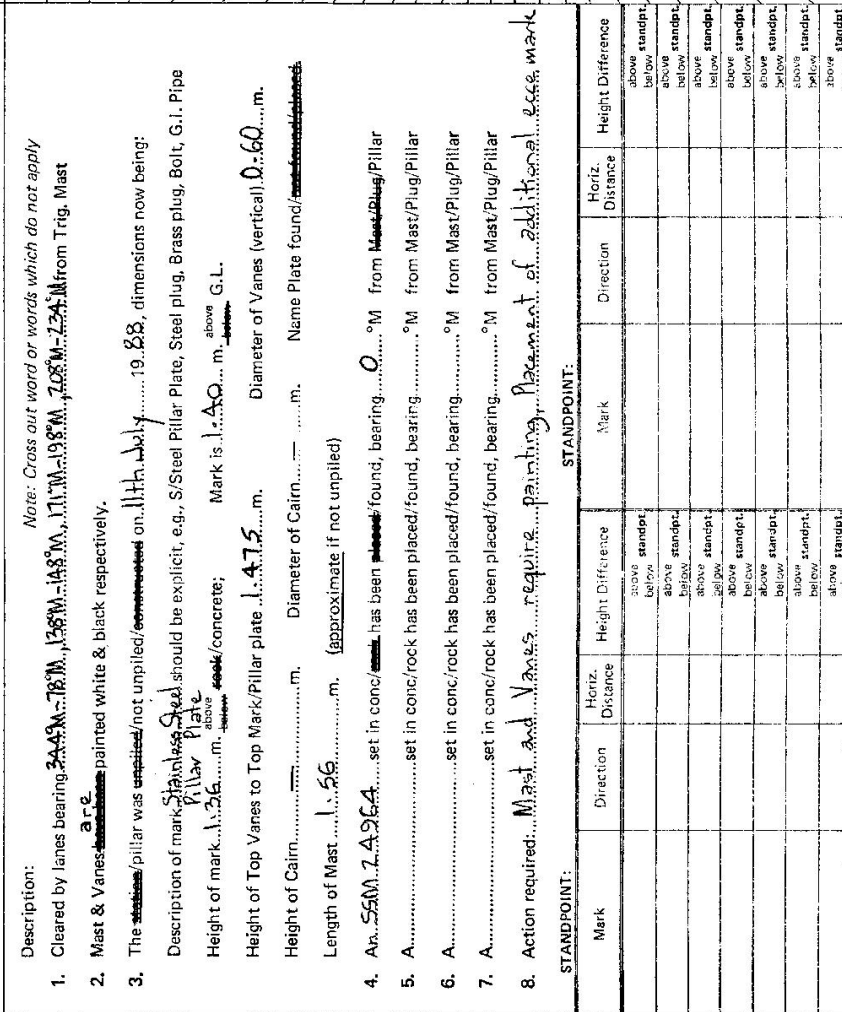 Description:
Note: Cross out word or words which do not apply
1. Cleared by lanes bearing 344°M-78°M, 138°M-148°M, 171°M-198°M, 208°M-234°M from Trig. Mast
2. Mast & Vanes are painted white & black respectively.
3. The station/pillar was unpiled/not unpiled/constructed on 11th July 19 88, dimensions now being:
Description of mark Stainless Steel should be explicit, e.g., S/Steel Pillar Plate, Steel plug, Brass plug, Bolt, G.I. Pipe
Pillar Plate
Height of mark 1.36 m. above below rock/concrete; Mark is 1.40 m. above below G.L.
Height of Top Vanes to Top Mark/Pillar plate 1.475 m. Diameter of Vanes (vertical) 0.60 m.
Height of Cairn — m. Diameter of Cairn — m. Name Plate found/not found/placed
Length of Mast 1.56 m. (approximate if not unpiled)
4. An SSM 24964 set in conc/rock has been placed/found, bearing 0 °M from Mast/Plug/Pillar
5. A set in conc/rock has been placed/found, bearing °M from Mast/Plug/Pillar
6. A set in conc/rock has been placed/found, bearing °M from Mast/Plug/Pillar
7. A set in conc/rock has been placed/found, bearing °M from Mast/Plug/Pillar
8. Action required: Mast and Vanes require painting, Placement of additional ecce mark
STANDPOINT: STANDPOINT:
Mark Direction Horiz. Distance Height Difference Mark Direction Horiz. Distance Height Difference
above below standpt. above below standpt.
above below standpt. above below standpt.
above below standpt. above below standpt.
above below standpt. above below standpt.
above below standpt. above below standpt.
above below standpt. above below standpt.
above standpt. above standpt.